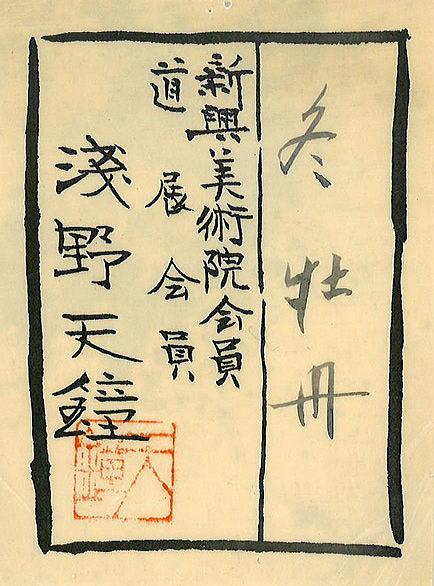 冬牡丹
新興美術院会員
道展会員
淺野天鐘